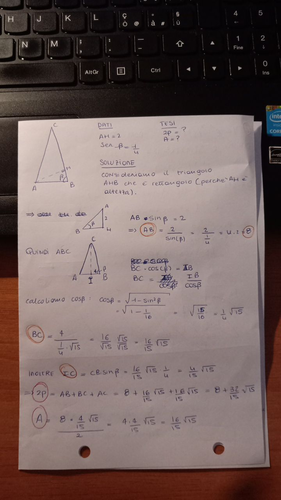 4
5
6
1
Fine
2
3
0
Ins
AltGr
Ctrl
C
H
β
A
B
DATI
TESI
AH = 2
2p = ?
A = ?
SOLUZIONE
consideriamo il triangolo
AHB che è rettangolo (perché AH è
altezza).
AB · sin β = 2
⇒ AB = 2/sin(β) = = 4·2 = 8
QUINDI ABC
BC · cos(β) = IB
BC = IB/cosβ
calcoliamo cosβ: cosβ = √1-sin²β
= √1 - 1/16 = √15/16 = 1/4 √15
BC = 4/(1/4 √15) = 16/√15 √15/√15 = 16/15 √15
inoltre IC = CB·sinβ = 16/15 √15 1/4 = 4/15 √15
⇒ 2p = AB+BC+AC = 8 + 16/15 √15 + 16/15 √15 = 8 + 32/15 √15
A = (8 · 4/15 √15)/2 = 4 · 4/15 √15 = 16/15 √15